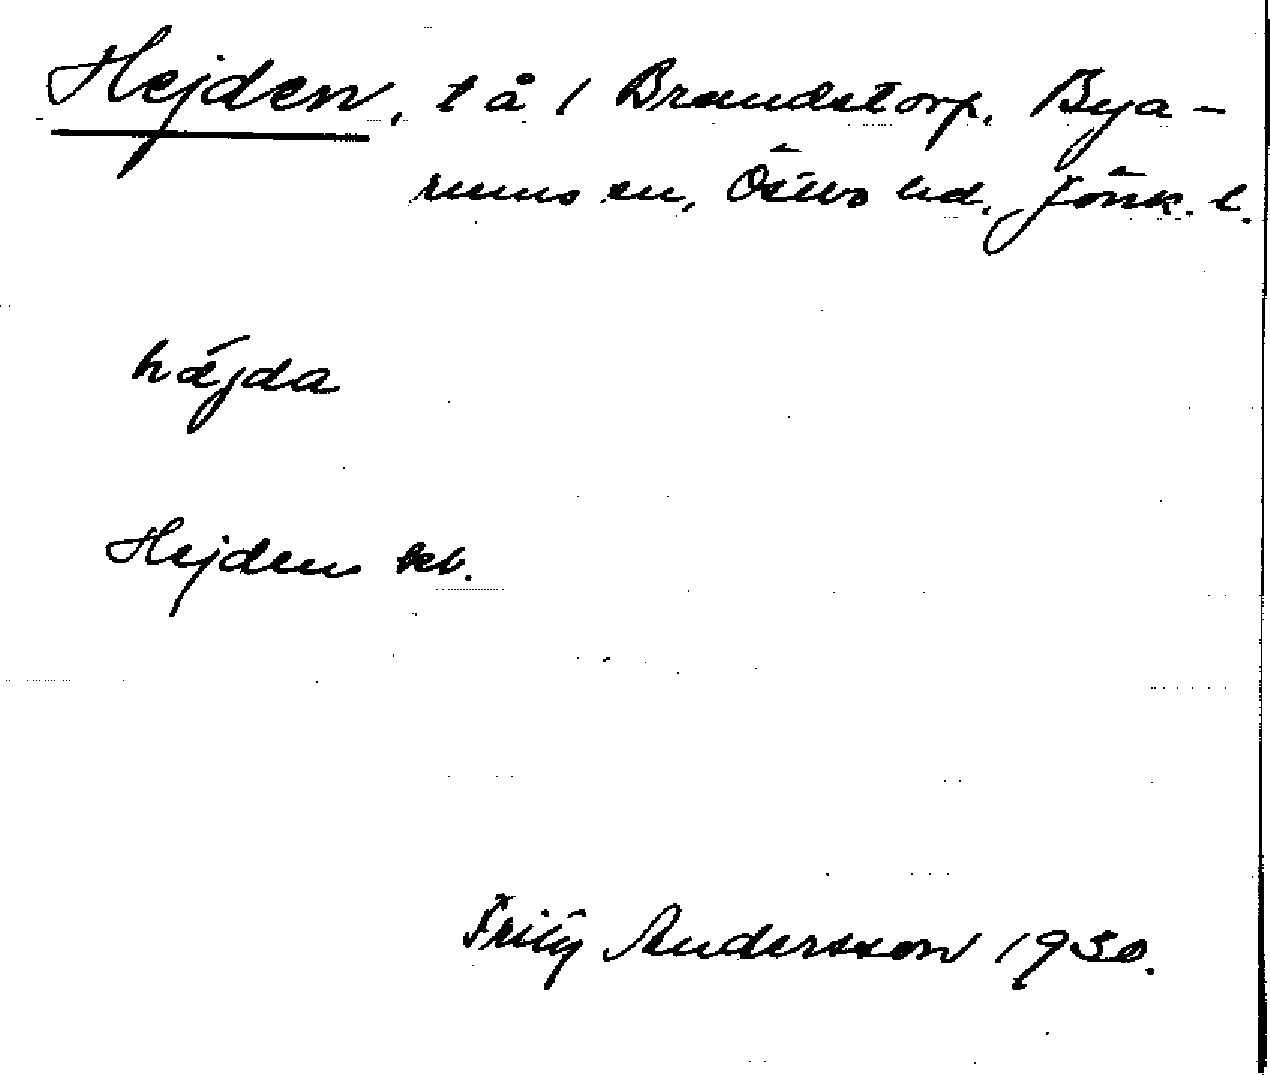 Hejden, t å / Brandstorp, Bya-
rums sn, Östbo hd, Jönk. l.
häjda
Hejden kb.
Fritz Andersson 1930.